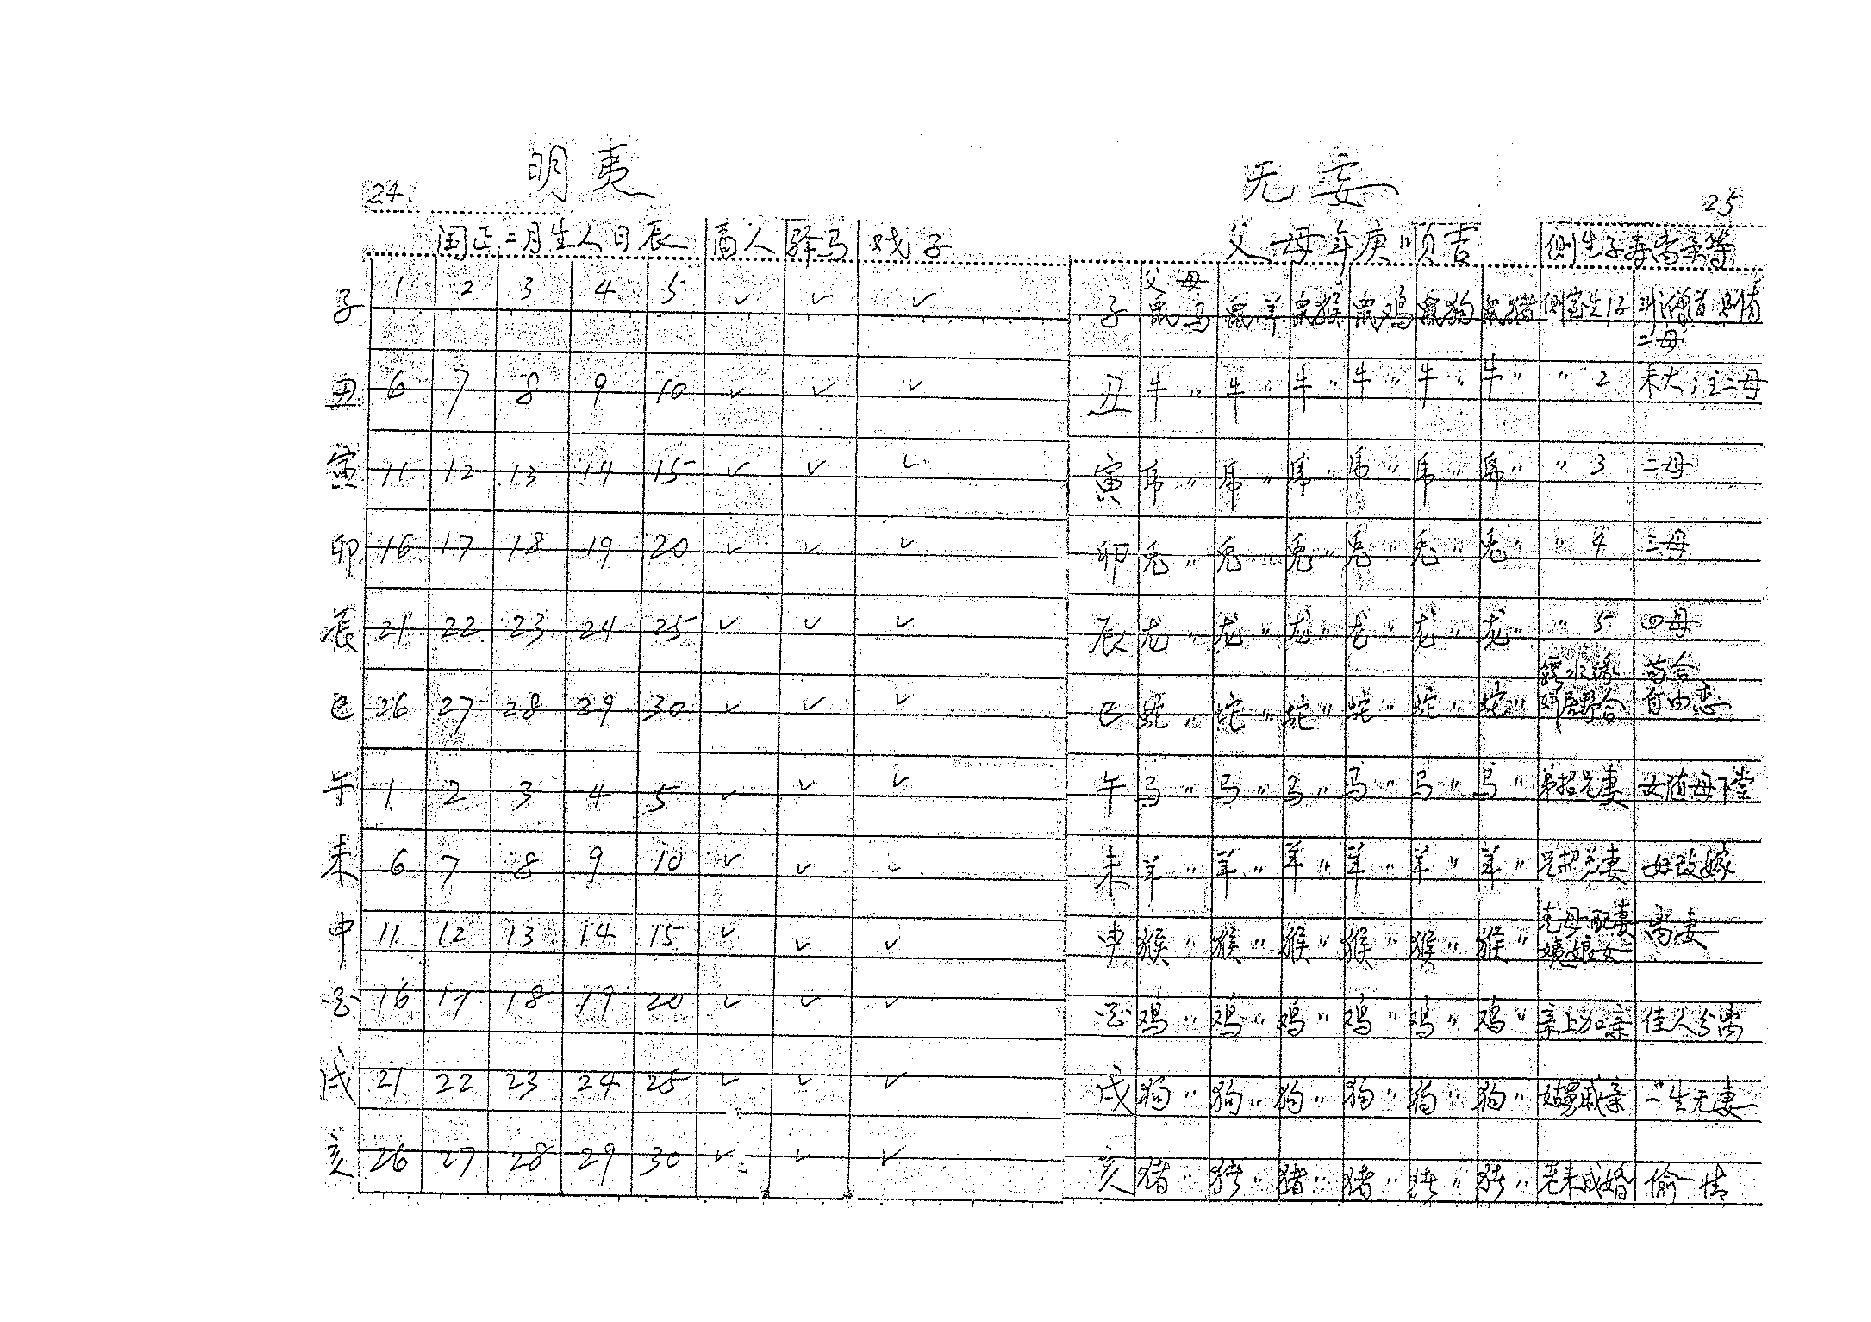 24
明夷
闰正二月生人日辰 商人 驿马 戏子
子 1 2 3 4 5 ✓ ✓ ✓
丑 6 7 8 9 10 ✓ ✓ ✓
寅 11 12 13 14 15 ✓ ✓ ✓
卯 16 17 18 19 20 ✓ ✓ ✓
辰 21 22 23 24 25 ✓ ✓ ✓
巳 26 27 28 29 30 ✓ ✓ ✓
午 1 2 3 4 5 ✓ ✓ ✓
未 6 7 8 9 10 ✓ ✓ ✓
申 11 12 13 14 15 ✓ ✓ ✓
酉 16 17 18 19 20 ✓ ✓ ✓
戌 21 22 23 24 25 ✓ ✓ ✓
亥 26 27 28 29 30 ✓ ✓ ✓
无妄
25
父母年庚顺吉 侧生子
父母
子 鼠马 鼠羊 鼠猴 鼠鸡 鼠狗 鼠猪 侧室生1子
二母
丑 牛〃 牛〃 牛〃 牛〃 牛〃 牛〃 〃2 二母
寅 虎〃 虎〃 虎〃 虎〃 虎〃 虎〃 〃3 二母
卯 兔〃 兔〃 兔〃 兔〃 兔〃 兔〃 〃4 三母
辰 龙〃 龙〃 龙〃 龙〃 龙〃 龙 〃5 四母
苟合
巳 蛇〃 蛇〃 蛇〃 蛇〃 蛇〃 蛇〃 自由恋
午 马〃 马〃 马〃 马〃 马〃 马〃 弟招兄妻 女随母下堂
未 羊〃 羊〃 羊〃 羊〃 羊〃 羊〃 改嫁
申 猴〃 猴〃 猴〃 猴〃 猴〃 猴〃 离妻
酉 鸡〃 鸡〃 鸡〃 鸡〃 鸡〃 鸡〃 亲上加亲 佳人分离
戌 狗〃 狗〃 狗〃 狗〃 狗〃 狗〃 姑舅成亲 一生无妻
亥 猪〃 猪〃 猪〃 猪〃 猪〃 猪〃 老未成婚 偷情